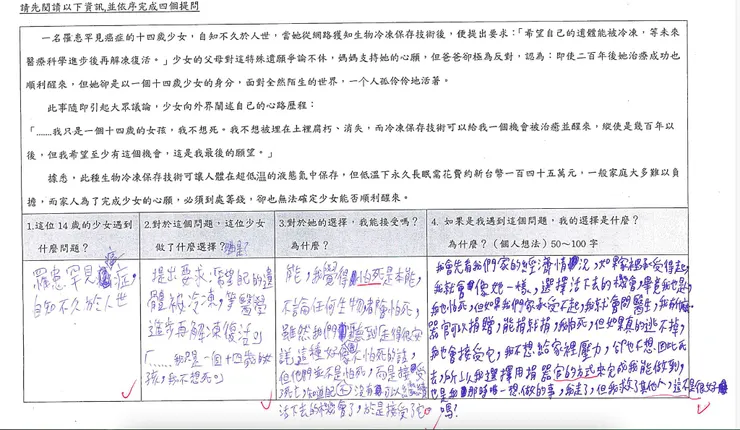 請先閱讀以下資訊,並依序完成四個提問
一名罹患罕見癌症的十四歲少女，自知不久於人世，當她從網路獲知生物冷凍保存技術後，便提出要求：「希望自己的遺體能被冷凍，等未來
醫療科學進步後再解凍復活。」少女的父母對這特殊遺願爭論不休，媽媽支持她的心願，但爸爸卻極為反對，認為：即使二百年後她治療成功也
順利醒來，但她卻是以一個十四歲少女的身分，面對全然陌生的世界，一個人孤伶伶地活著。
此事隨即引起大眾議論，少女向外界闡述自己的心路歷程：
「……我只是一個十四歲的女孩，我不想死。我不想被埋在土裡腐朽、消失，而冷凍保存技術可以給我一個機會被治癒並醒來，縱使是幾百年以
後，但我希望至少有這個機會，這是我最後的願望。」
據悉，此種生物冷凍保存技術可讓人體在超低溫的液態氮中保存，但低溫下永久長眠需花費約新台幣一百四十五萬元，一般家庭大多難以負
擔，而家人為了完成少女的心願，必須到處籌錢，卻也無法確定少女能否順利醒來。
1.這位 14 歲的少女遇到
什麼問題？
2.對於這個問題，這位少女
做了什麼選擇？
3.對於她的選擇，我能接受嗎？
為什麼？
4. 如果是我遇到這個問題，我的選擇是什麼？
為什麼？（個人想法）50~100 字
罹患罕見癌症，
自知不久於人世
提出要求：希望自己的遺
體被冷凍，等醫學
進步再解凍復活。
「……我只是一個十四歲的女
孩，我不想死。」
能，我覺得怕死是本能，
不論任何生物都會怕死，
雖然我們
諾這種好像不怕死的話，
但他們並不是怕死，而是接受
死亡，知道自己沒有可以
活下去的機會了，於是接受了它。
我會先看我們家的經濟情況，如果家裡承受得起，
我就會像她一樣，選擇活下去的機會，畢竟我也是
我也怕死，但如果我們家承受不起，我就會問醫生，我的
器官可以捐贈，能捐就捐，我怕死，但如果真的逃不掉，
我也會接受它，我不想給家裡壓力，卻也不想因此死
去，所以我選擇用捐器官的方式來完成我能做到，
也是我那時唯一想做的事，我走了，但我救了其他人，這不是很好
嗎？